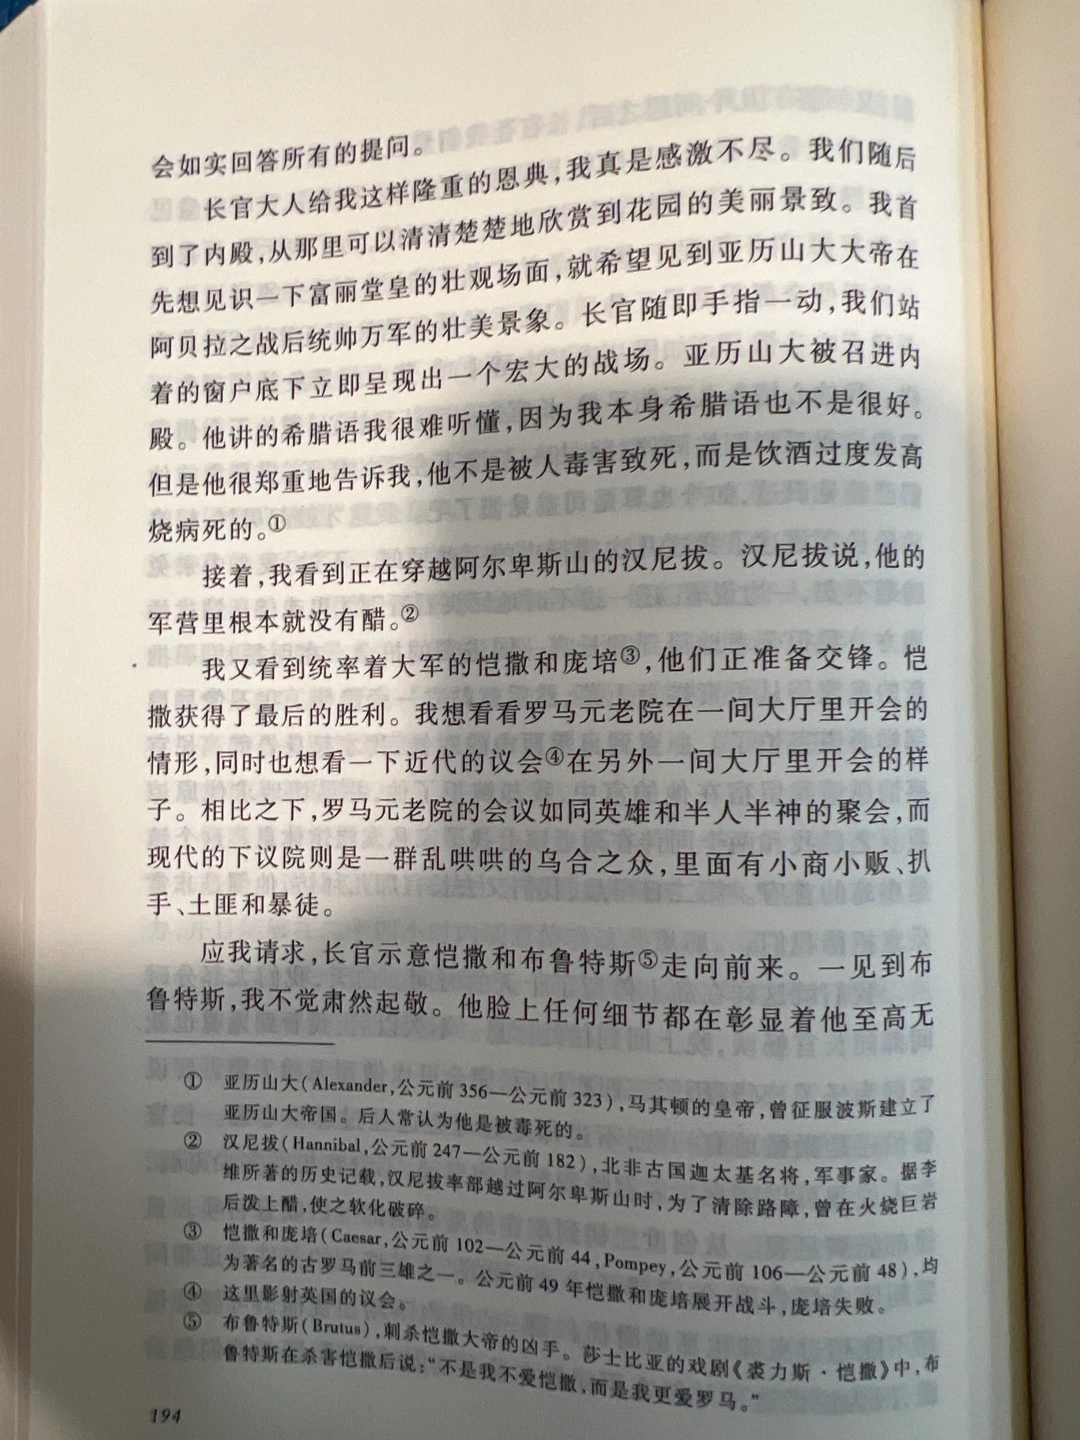 会如实回答所有的提问。
长官大人给我这样隆重的恩典，我真是感激不尽。我们随后
到了内殿，从那里可以清清楚楚地欣赏到花园的美丽景致。我首
先想见识一下富丽堂皇的壮观场面，就希望见到亚历山大大帝在
阿贝拉之战后统帅万军的壮美景象。长官随即手指一动，我们站
着的窗户底下立即呈现出一个宏大的战场。亚历山大被召进内
殿。他讲的希腊语我很难听懂，因为我本身希腊语也不是很好。
但是他很郑重地告诉我，他不是被人毒害致死，而是饮酒过度发高
烧病死的。①
接着，我看到正在穿越阿尔卑斯山的汉尼拔。汉尼拔说，他的
军营里根本就没有醋。②
我又看到统率着大军的恺撒和庞培③，他们正准备交锋。恺
撒获得了最后的胜利。我想看看罗马元老院在一间大厅里开会的
情形，同时也想看一下近代的议会④在另外一间大厅里开会的样
子。相比之下，罗马元老院的会议如同英雄和半人半神的聚会，而
现代的下议院则是一群乱哄哄的乌合之众，里面有小商小贩、扒
手、土匪和暴徒。
应我请求，长官示意恺撒和布鲁特斯⑤走向前来。一见到布
鲁特斯，我不觉肃然起敬。他脸上任何细节都在彰显着他至高无
① 亚历山大（Alexander，公元前 356—公元前 323），马其顿的皇帝，曾征服波斯建立了
亚历山大帝国。后人常认为他是被毒死的。
② 汉尼拔（Hannibal，公元前 247—公元前 182），北非古国迦太基名将，军事家。据李
维所著的历史记载，汉尼拔率部越过阿尔卑斯山时，为了清除路障，曾在火烧巨岩
后泼上醋，使之软化破碎。
③ 恺撒和庞培（Caesar，公元前 102—公元前 44，Pompey，公元前 106—公元前 48），均
为著名的古罗马前三雄之一。公元前 49 年恺撒和庞培展开战斗，庞培失败。
④ 这里影射英国的议会。
⑤ 布鲁特斯（Brutus），刺杀恺撒大帝的凶手。莎士比亚的戏剧《裘力斯·恺撒》中，布
鲁特斯在杀害恺撒后说：“不是我不爱恺撒，而是我更爱罗马。”
194